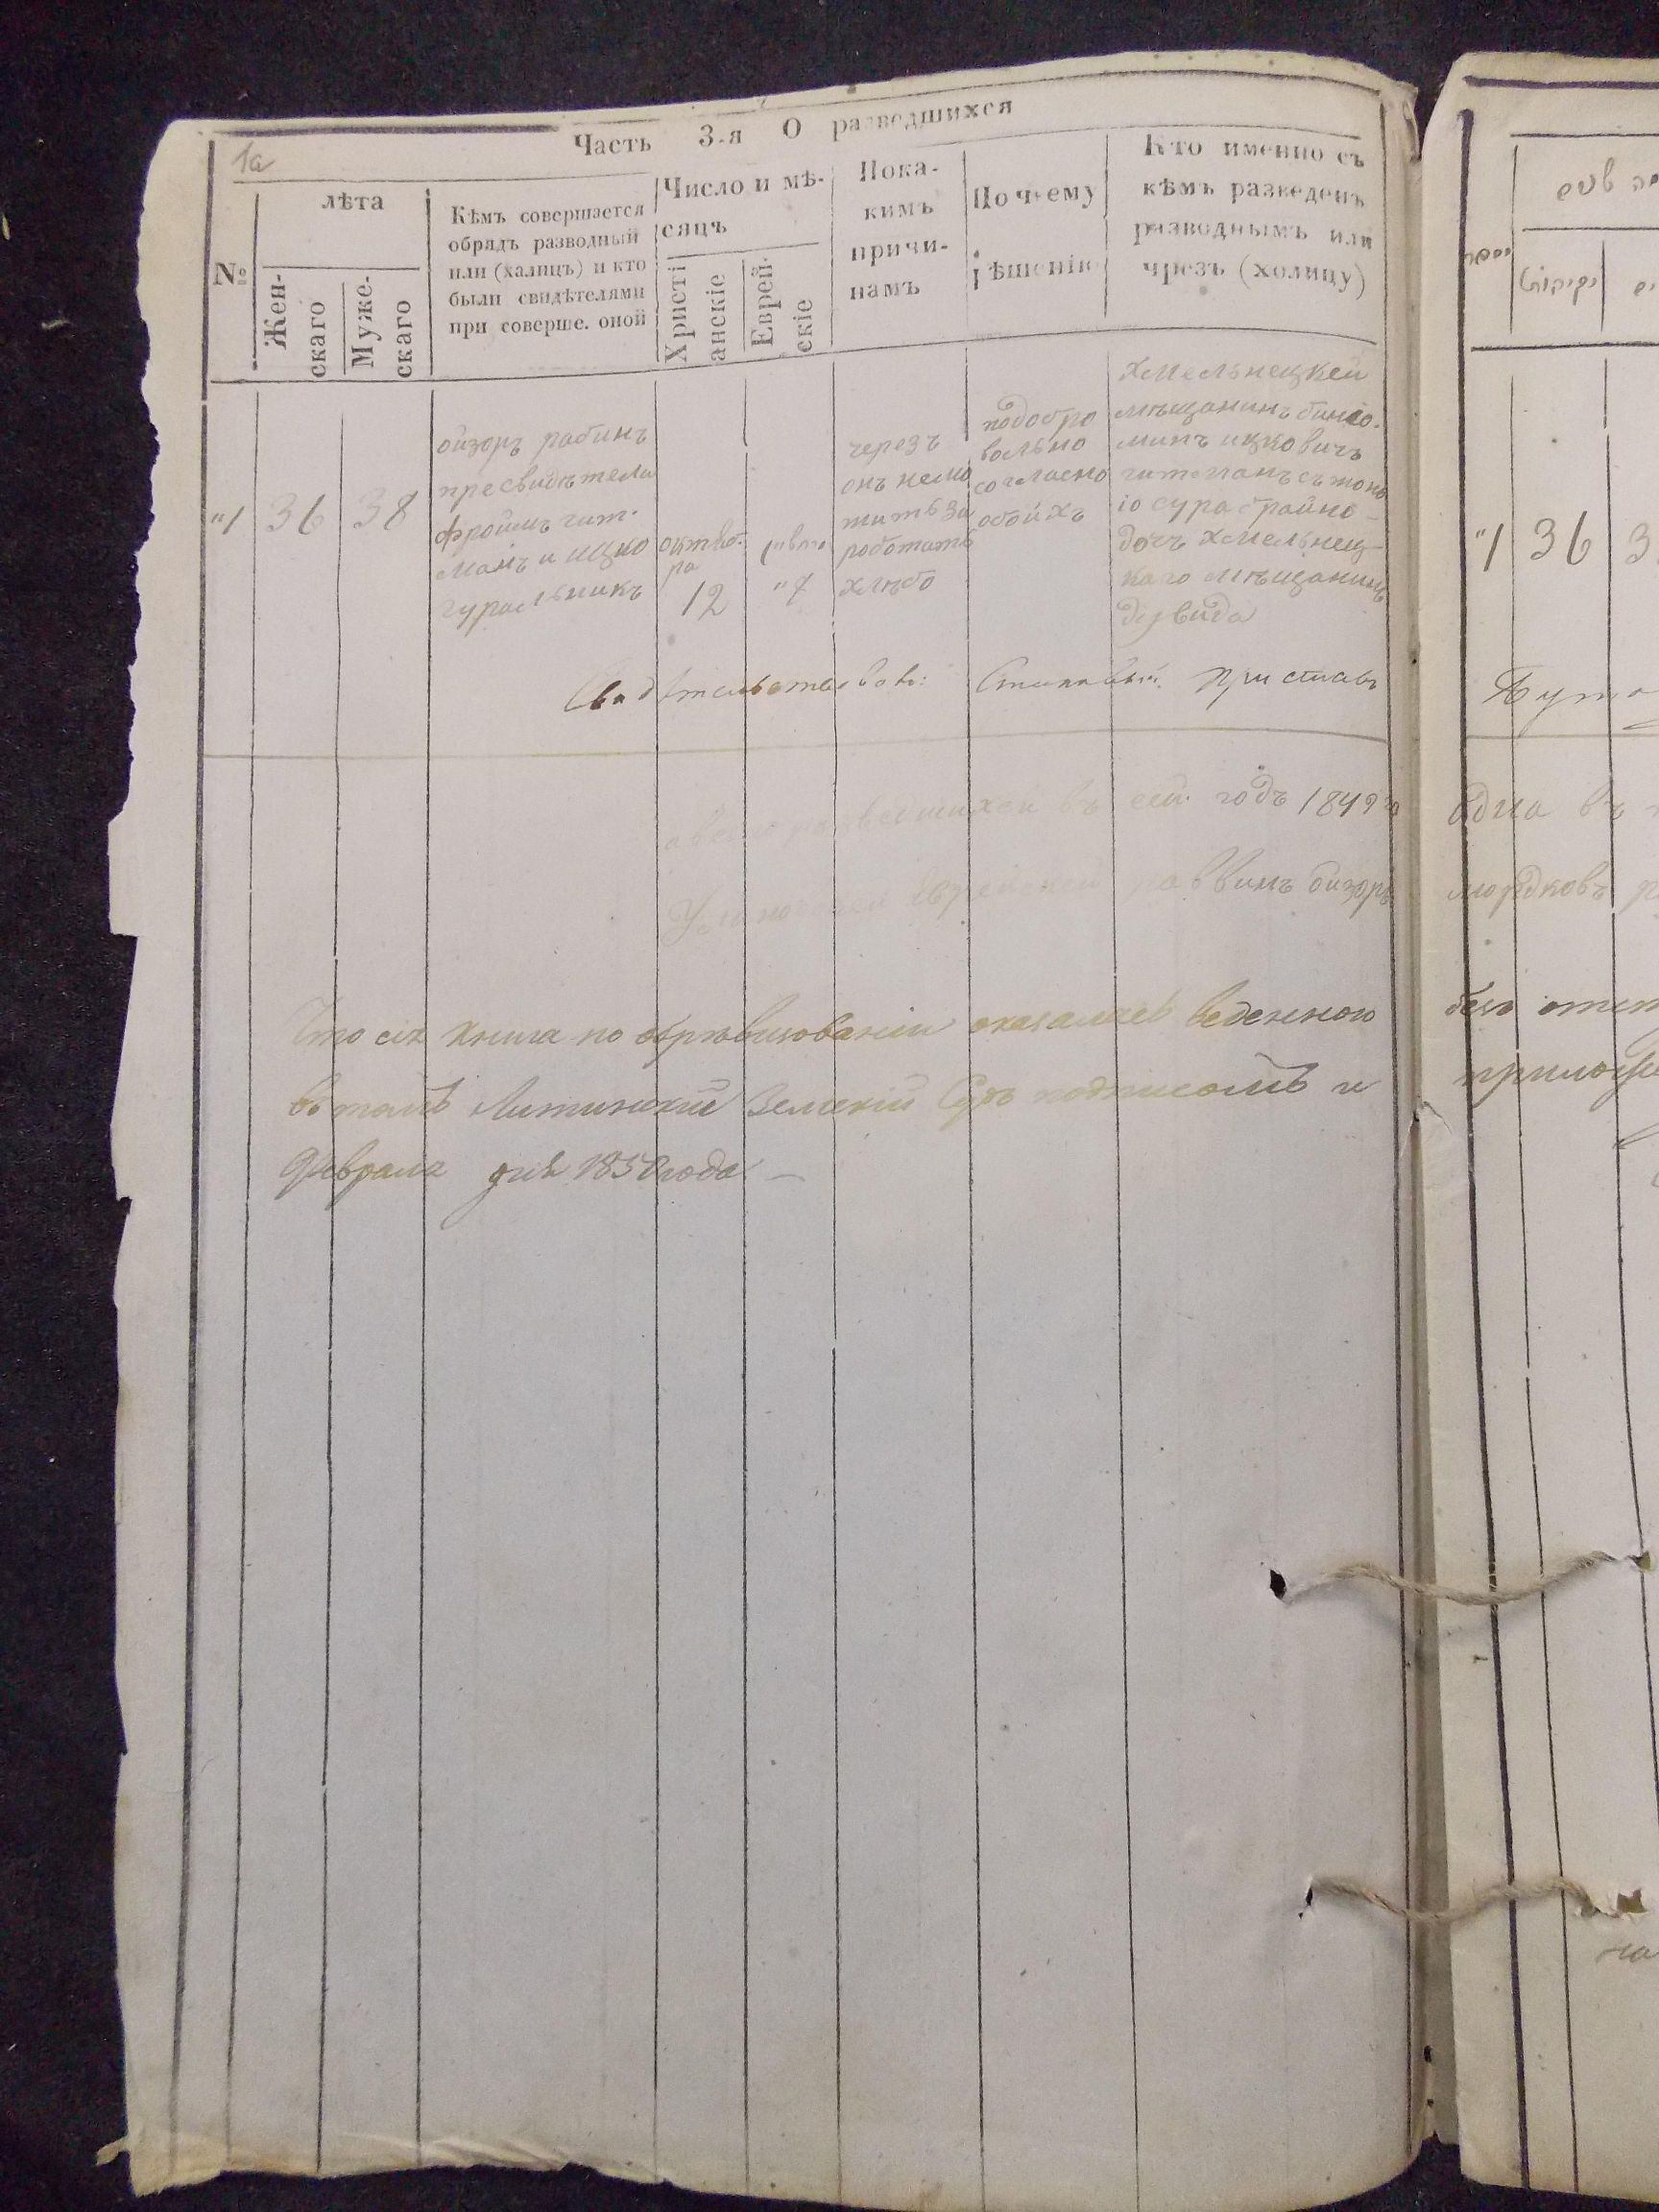 Часть 3-я О разведшихся
1а
№
лѣта
Жен-
скаго
Муже-
скаго
Кѣмъ совершается
обрядъ разводный
или (халицъ) и кто
были свидѣтелями
при соверше. оной
Число и мѣ-
сяцъ
Христі
анскіе
Еврей-
скіе
Пока-
кимъ
причи-
намъ
По чьему
рѣшенію
Кто именно съ
кѣмъ разведенъ
разводнымъ или
чрезъ (холицу)
"1
36
38
ойзоръ рабинъ
пре свидѣтели
фроимъ гит-
манъ и ицко
гуральникъ
октяб-
ра
12
"7
через
онъ немо
жить за
роботать
хлѣбо
подобро
вольно
согласно
обойхъ
хмельнецкей
мѣщанинъ биніо-
минъ ицковичъ
гитманъ съ женo
іо сура брайна
дочъ хмельнец-
каго мѣщанина
дувида
Свидѣтельствовалъ: Становый Приставъ
разведшихся въ сей годъ 1849 го
Еврейскей раввинъ ойзоръ
Что сія книга по обрѣвизованіи оказалась веденною
въ томъ Литинскій Земскій Судъ подписомъ и
Февраля дня 1850 года —
"1
36
одна въ
мордковъ
приложе
на